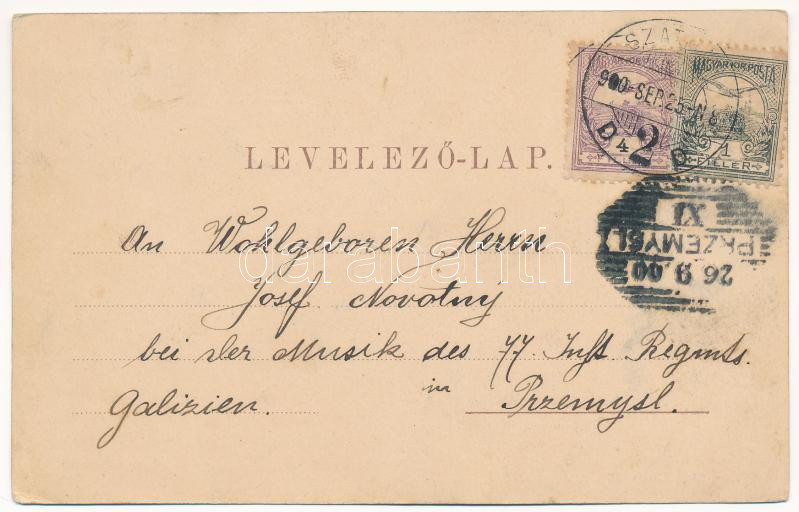 MAGYAR KIR. POSTA
MAGYAR KIR. POSTA
4 FILLER
1 FILLER
900 SEP. 25
D 2 D
LEVELEZŐ-LAP.
26 9 00
PRZEMYSL
XI
An Wohlgeboren Herrn
Josef Novotny
bei der Musik des 77. Inft. Regmts.
in
Galizien. Przemysl.
darabanth